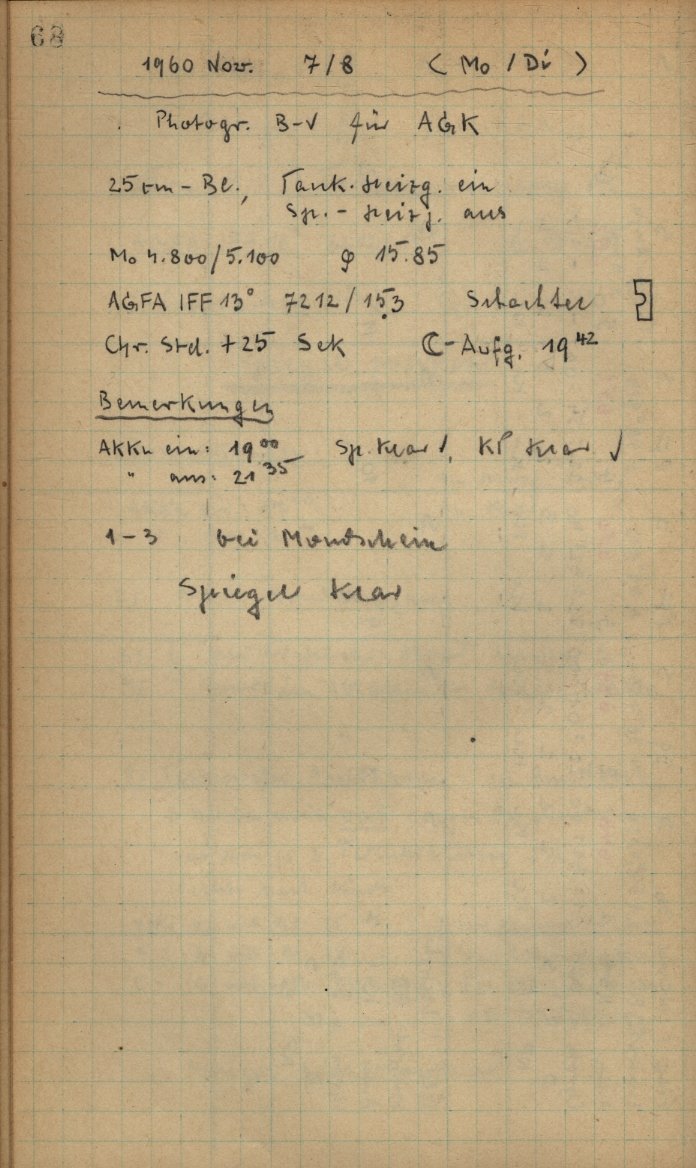 68
1960 Nov. 7/8 (Mo/Di)
Photogr. B-V für AGK
25 cm-Bl., Tank-Heizg. ein
Sp.-Heizg. aus
Mo 4.800/5.100 φ 15.85
AGFA IFF 13° 7212/153 Schachtel 5
Chr. Std. +25 Sek ☾-Aufg. 19 42
Bemerkungen
Akku ein: 19 00 Sp. klar √, KP klar √
" aus: 21 35
1-3 bei Mondschein
Spiegel klar